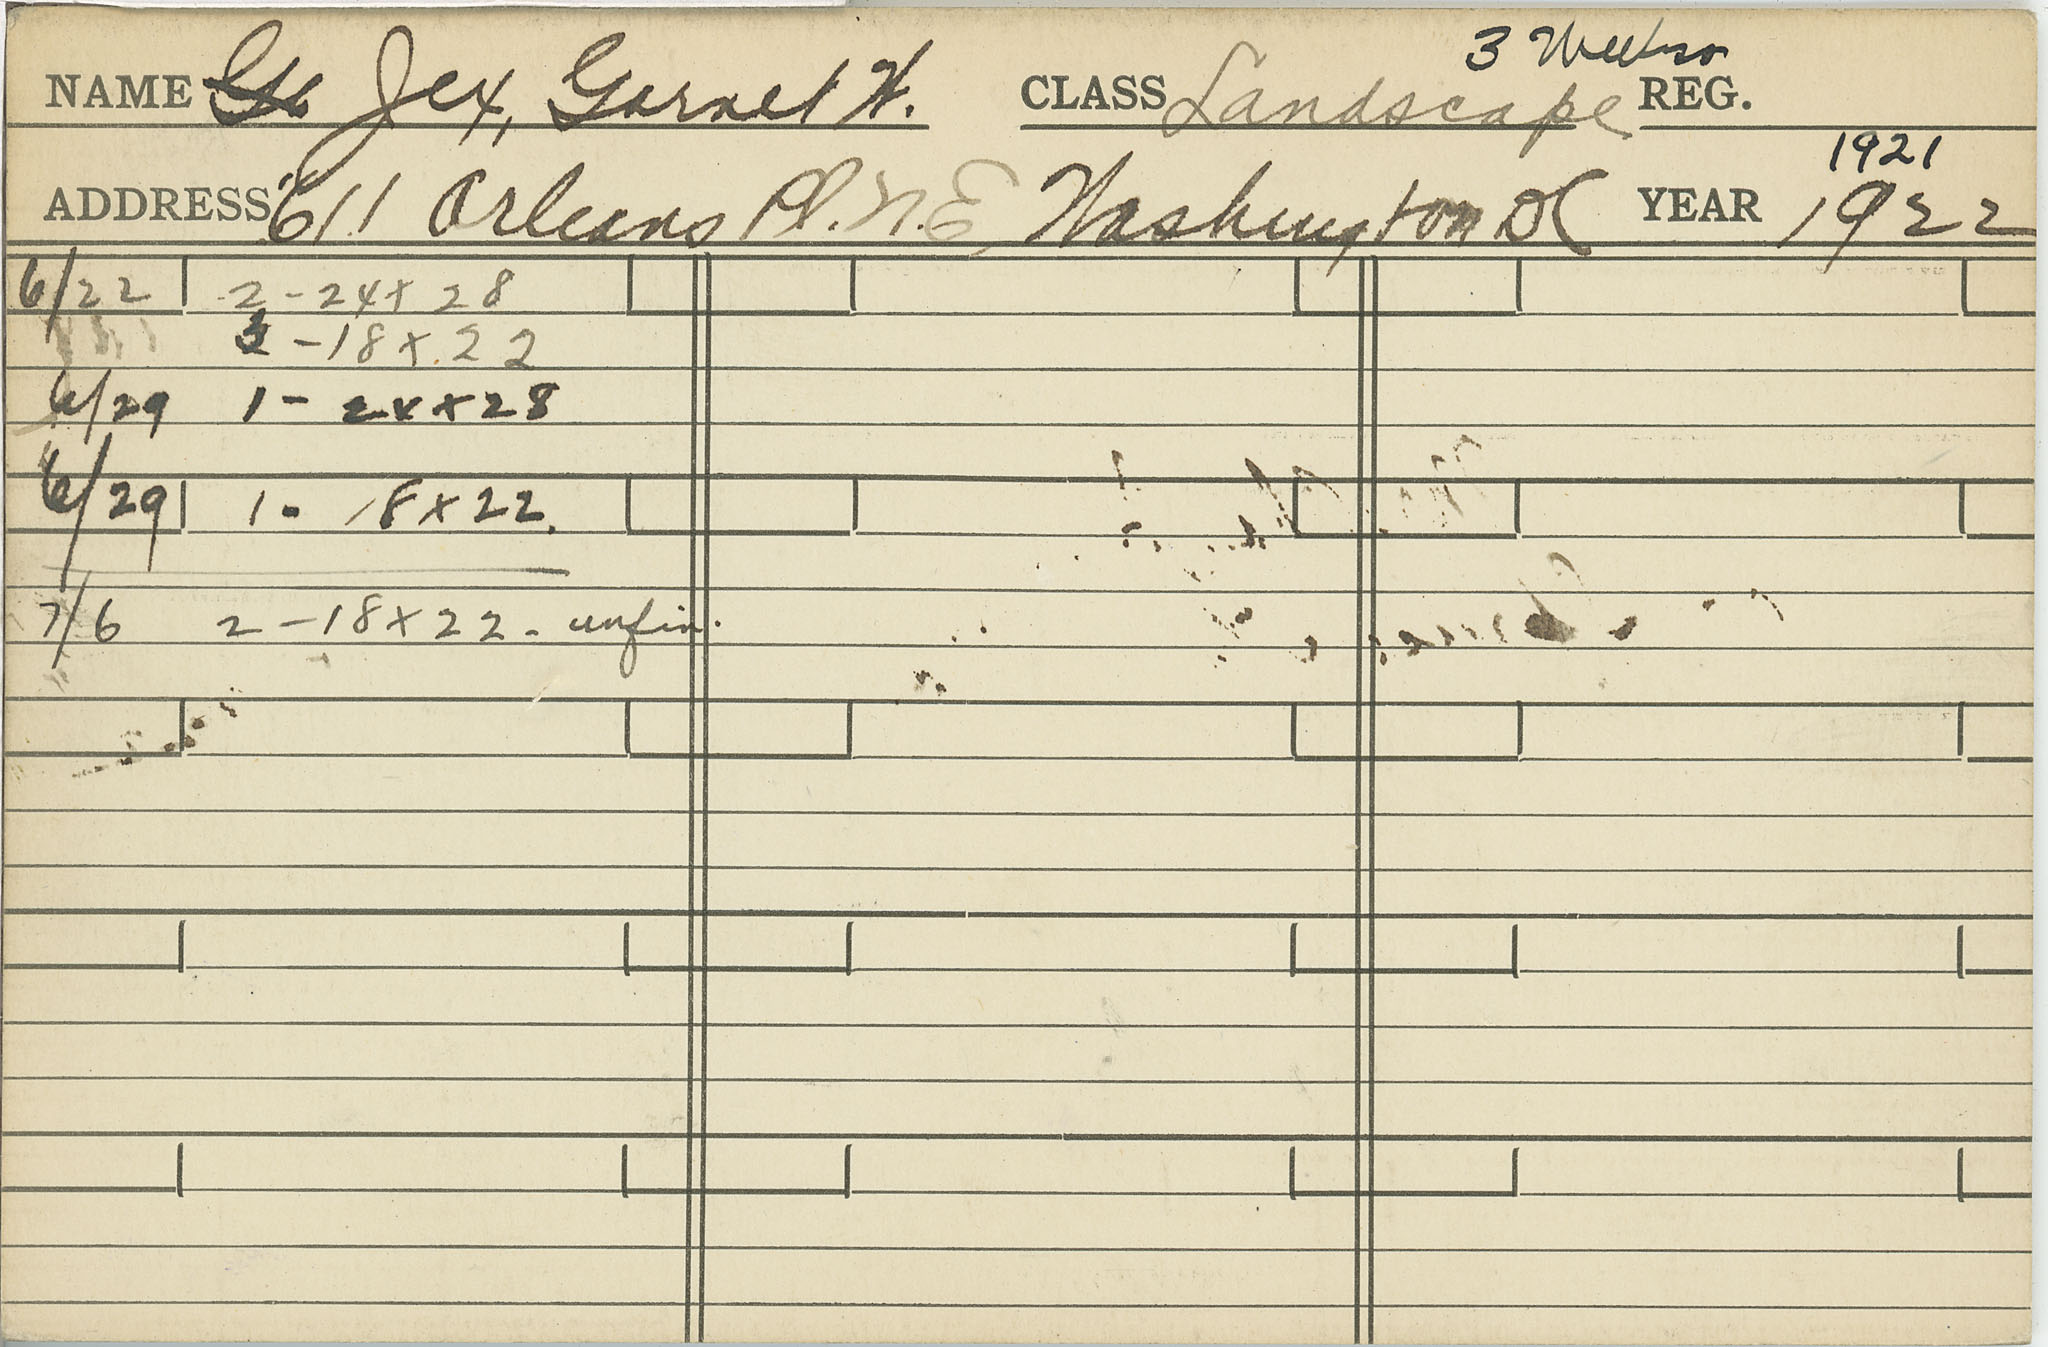 3 Weeks
NAME Jex, Garnet W. CLASS Landscape REG.
1921
ADDRESS 611 Orleans Pl. N.E Washington DC YEAR 1922
6/22 2 - 24 x 28
3 - 18 x 22
6/29 1 - 24 x 28
6/29 1 - 18 x 22.
7/6 2 - 18 x 22 - unfin.